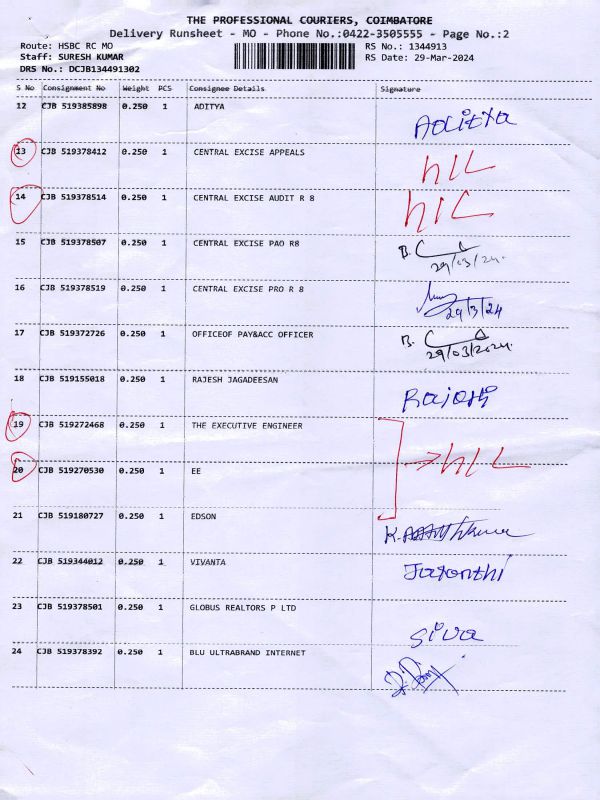 THE PROFESSIONAL COURIERS, COIMBATORE
Delivery Runsheet - MO - Phone No.:0422-3505555 - Page No.:2
Route: HSBC RC MO
Staff: SURESH KUMAR
DRS No.: DCJB134491302
RS No.: 1344913
RS Date: 29-Mar-2024
S No Consignment No Weight PCS Consignee Details Signature
12 CJB 519385898 0.250 1 ADITYA Aditya
13 CJB 519378412 0.250 1 CENTRAL EXCISE APPEALS
14 CJB 519378514 0.250 1 CENTRAL EXCISE AUDIT R 8
15 CJB 519378507 0.250 1 CENTRAL EXCISE PAO R8 B.
29/03/24.
16 CJB 519378519 0.250 1 CENTRAL EXCISE PRO R 8
29/3/24
17 CJB 519372726 0.250 1 OFFICEOF PAY&ACC OFFICER B.
29/03/2024.
18 CJB 519155018 0.250 1 RAJESH JAGADEESAN
19 CJB 519272468 0.250 1 THE EXECUTIVE ENGINEER
20 CJB 519270530 0.250 1 EE
21 CJB 519180727 0.250 1 EDSON
22 CJB 519344012 0.250 1 VIVANTA
23 CJB 519378501 0.250 1 GLOBUS REALTORS P LTD Siva
24 CJB 519378392 0.250 1 BLU ULTRABRAND INTERNET